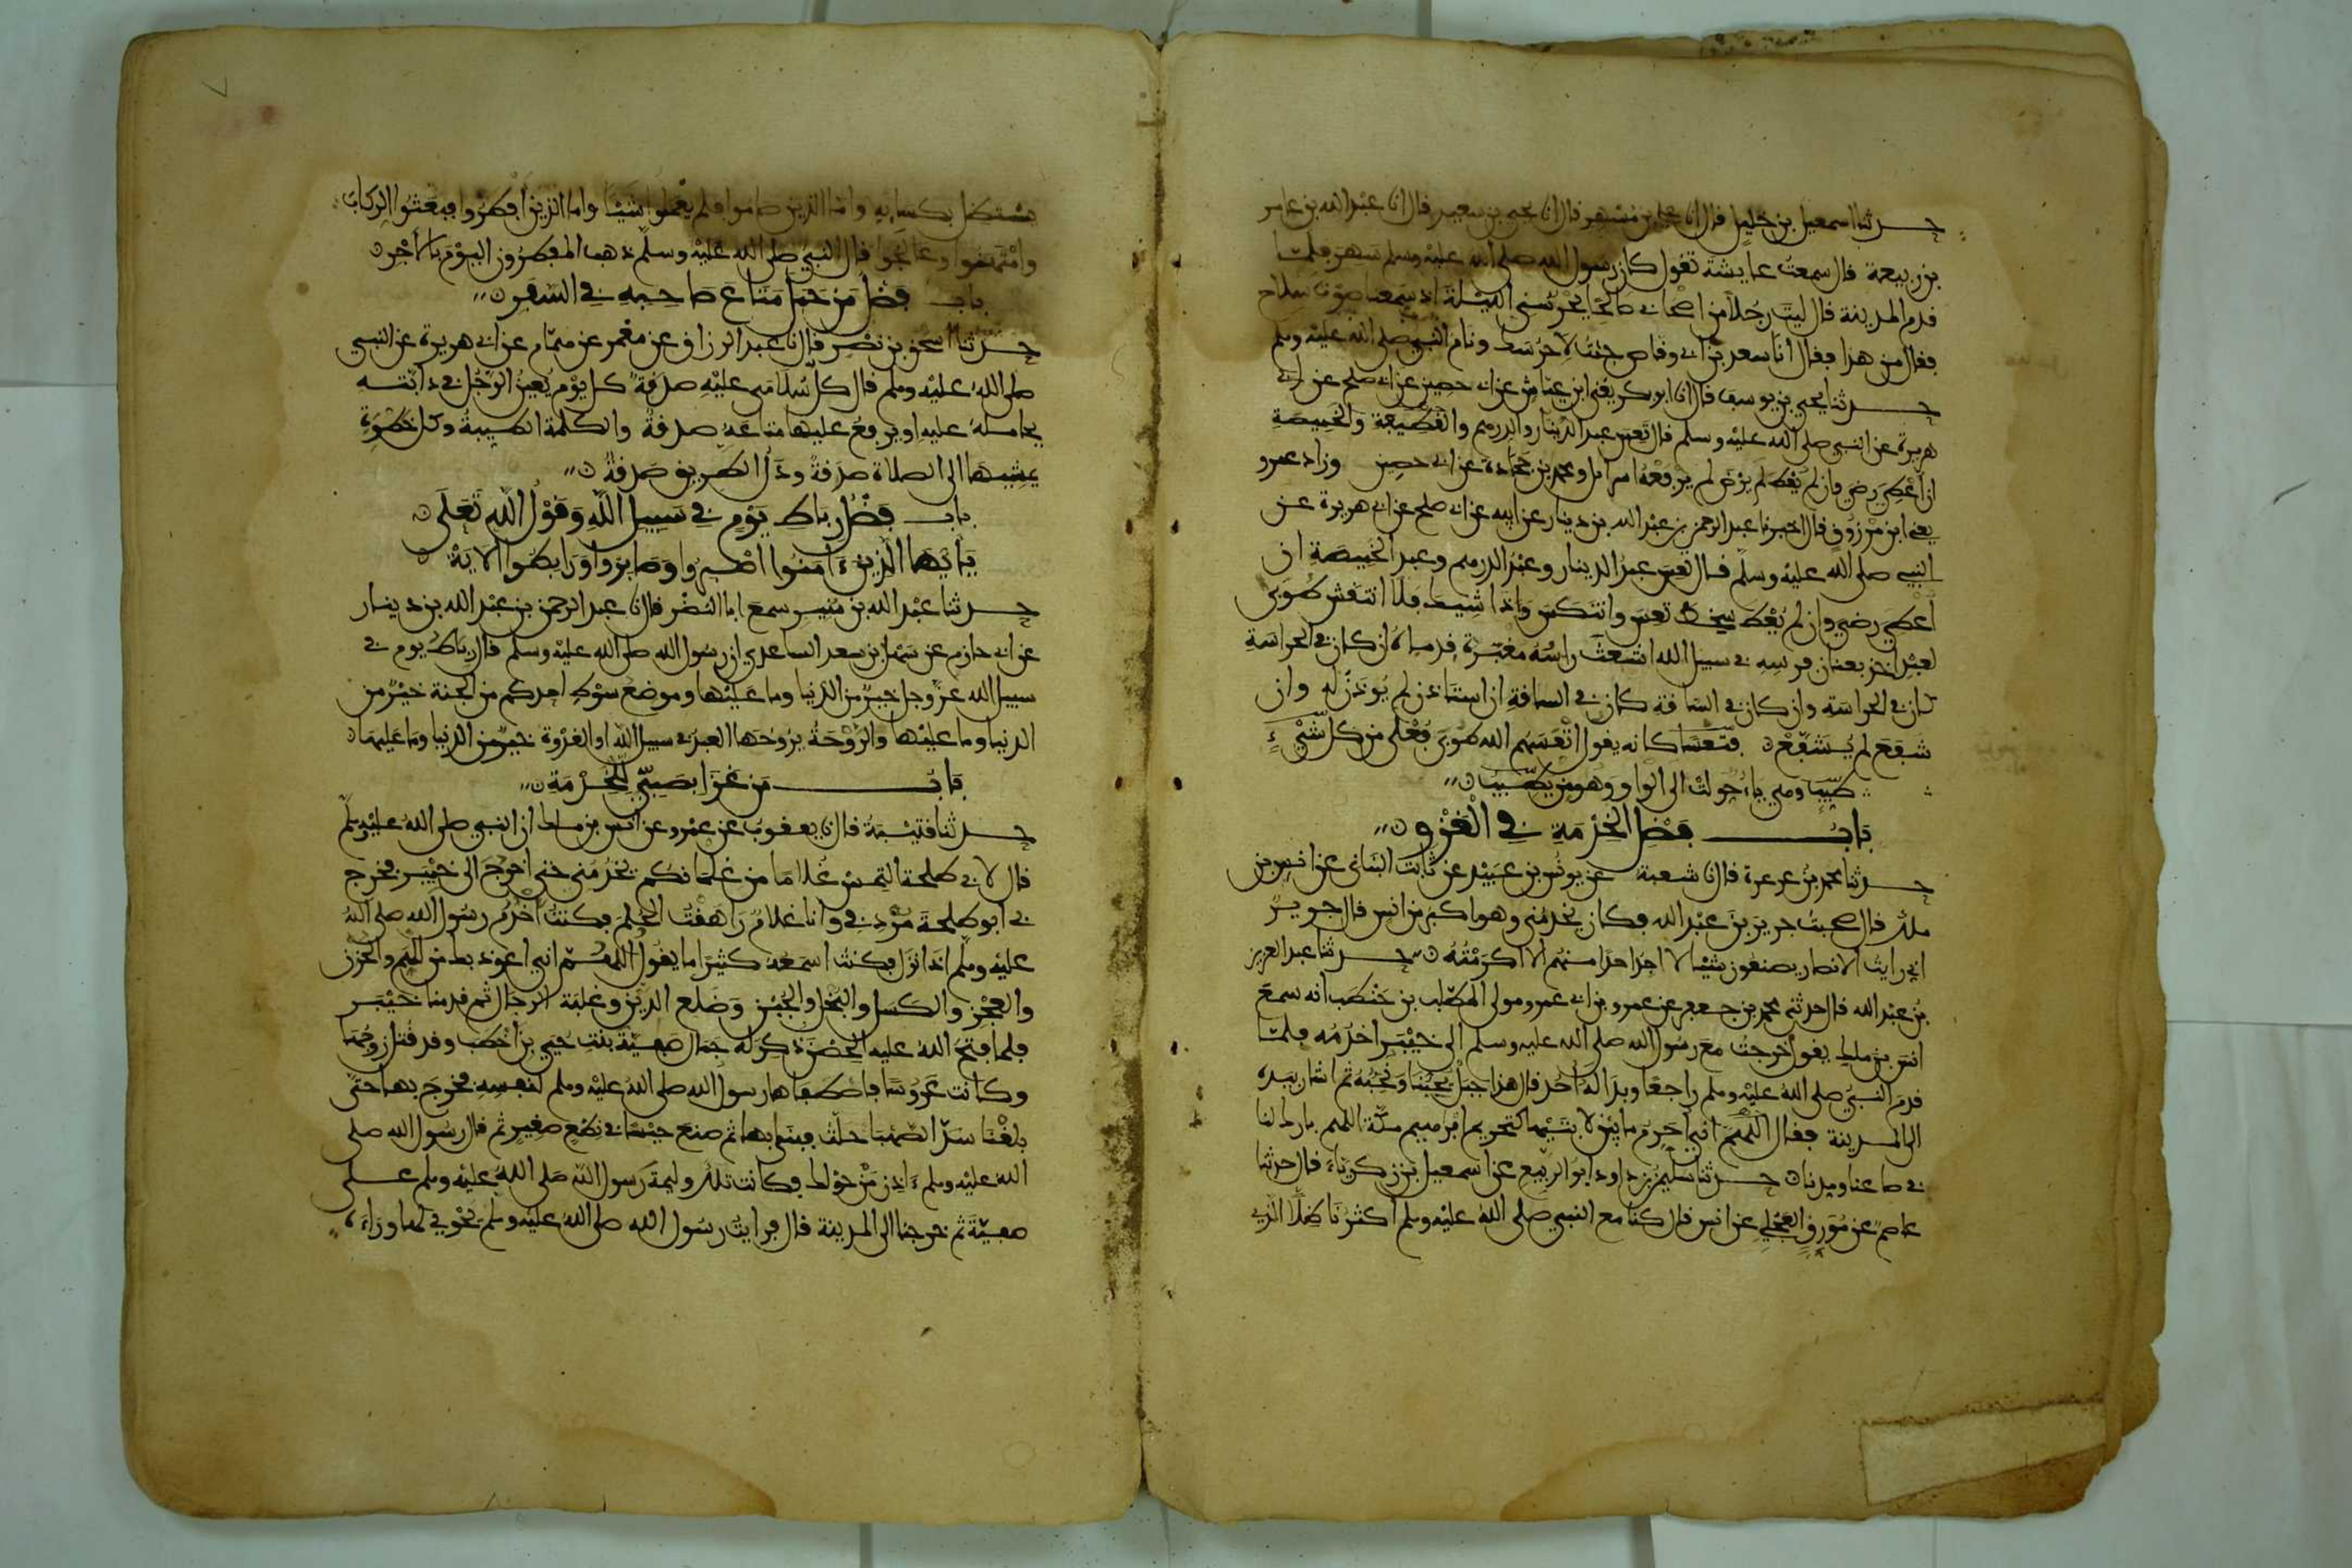 حدثنا اسمعيل بن خليل قال انا علي بن مسهر قال انا يحيى بن سعيد قال انا عبد الله بن عامر
بن ربيعة قال سمعت عايشة تقول كان رسول الله صلى الله عليه وسلم سهر فلما
قدم المدينة قال ليت رجلا من اصحابي صالحا يحرسني الليلة اذ سمعنا صوت سلاح
فقال من هذا فقال انا سعد بن ابي وقاص جئت لاحرسك ونام النبي صلى الله عليه وسلم
حدثنا يحيى بن يوسف قال انا ابو بكر يعني ابن عياش عن ابي حصين عن ابي صلح عن ابي
هريرة عن النبي صلى الله عليه وسلم قال تعس عبد الدينار والدرهم والقطيفة والخميصة
ان اعطي رضي وان لم يعط لم يرض لم يرفعه اسرائل ومحمد بن جحادة عن ابي حصين وزاد عمرو
يعني ابن مرزوق قال اخبرنا عبد الرحمن بن عبد الله بن دينار عن ابيه عن ابي صلح عن ابي هريرة عن
النبي صلى الله عليه وسلم قال تعس عبد الدينار وعبد الدرهم وعبد الخميصة ان
اعطي رضي وان لم يعط سخط تعس وانتكس واذا شيك فلا انتقش طوبى
لعبد اخذ بعنان فرسه في سبيل الله اشعث راسه مغبرة قدماه ان كان في الحراسة
كان في الحراسة وان كان في الساقة كان في الساقة ان استاذن لم يوذن له وان
شفع لم يشفع فتعسا كانه يقول اتعسهم الله طوبى فعلى من كل شيء
طيب وهي ياء حولت الى الواو وهو من يطيب
باب فضل الخدمة في الغزو
حدثنا محمد بن عرعرة قال انا شعبة عن يونس بن عبيد عن ثابت البناني عن انس بن
ملك قال صحبت جرير بن عبد الله فكان يخدمني وهو اكبر من انس قال جرير
اني رايت الانصار يصنعون شيئا لا اجد احدا منهم الا اكرمته حدثنا عبد العزيز
بن عبد الله قال حدثني محمد بن جعفر عن عمرو بن ابي عمرو مولى المطلب بن حنطب انه سمع
انس بن ملك يقول خرجت مع رسول الله صلى الله عليه وسلم الى خيبر اخدمه فلما
قدم النبي صلى الله عليه وسلم راجعا وبدا له احد قال هذا جبل يحبنا ونحبه ثم اشار بيده
الى المدينة فقال اللهم اني احرم ما بين لابتيها كتحريم ابرهيم مكة اللهم بارك لنا
في صاعنا ومدنا حدثنا سليمن بن داود ابو الربيع عن اسمعيل بن زكرياء قال حدثنا
عاصم عن مورق العجلي عن انس قال كنا مع النبي صلى الله عليه وسلم اكثرنا ظلا الذي
يستظل بكسايه واما الذين صاموا فلم يعملوا شيئا واما الذين افطروا فبعثوا الركاب
وامتهنوا وعالجوا فقال النبي صلى الله عليه وسلم ذهب المفطرون اليوم بالاجر
باب فضل من حمل متاع صاحبه في السفر
حدثنا اسحق بن نصر قال انا عبد الرزاق عن معمر عن همام عن ابي هريرة عن النبي
صلى الله عليه وسلم قال كل سلامى عليه صدقة كل يوم يعين الرجل في دابته
يحامله عليه او يرفع عليها متاعه صدقة والكلمة الطيبة وكل خطوة
يمشيها الى الصلاة صدقة ودل الطريق صدقة
باب فضل رباط يوم في سبيل الله وقول الله تعلى
يايها الذين ءامنوا اصبروا وصابروا ورابطوا الاية
حدثنا عبد الله بن منير سمع ابا النضر قال انا عبد الرحمن بن عبد الله بن دينار
عن ابي حازم عن سهل بن سعد الساعدي ان رسول الله صلى الله عليه وسلم قال رباط يوم في
سبيل الله عز وجل خير من الدنيا وما عليها وموضع سوط احدكم من الجنة خير من
الدنيا وما عليها والروحة يروحها العبد في سبيل الله او الغدوة خير من الدنيا وما عليها
باب من غزا بصبي للخدمة
حدثنا قتيبة قال انا يعقوب عن عمرو عن انس بن ملك ان النبي صلى الله عليه وسلم
قال لابي طلحة التمس غلاما من غلمانكم يخدمني حتى اخرج الى خيبر فخرج
بي ابو طلحة مردفي وانا غلام راهقت الحلم فكنت اخدم رسول الله صلى الله
عليه وسلم اذا نزل فكنت اسمعه كثيرا ما يقول اللهم اني اعوذ بك من الهم والحزن
والعجز والكسل والبخل والجبن وضلع الدين وغلبة الرجال ثم قدمنا خيبر
فلما فتح الله عليه الحصن ذكر له جمال صفية بنت حيي بن اخطب وقد قتل زوجها
وكانت عروسا فاصطفاها رسول الله صلى الله عليه وسلم لنفسه فخرج بها حتى
بلغنا سد الصهبا حلت فبنى بها ثم صنع حيسا في نطع صغير ثم قال رسول الله صلى
الله عليه وسلم ءاذن من حولك فكانت تلك وليمة رسول الله صلى الله عليه وسلم على
صفية ثم خرجنا الى المدينة قال فرايت رسول الله صلى الله عليه وسلم يحوي لها وراءه